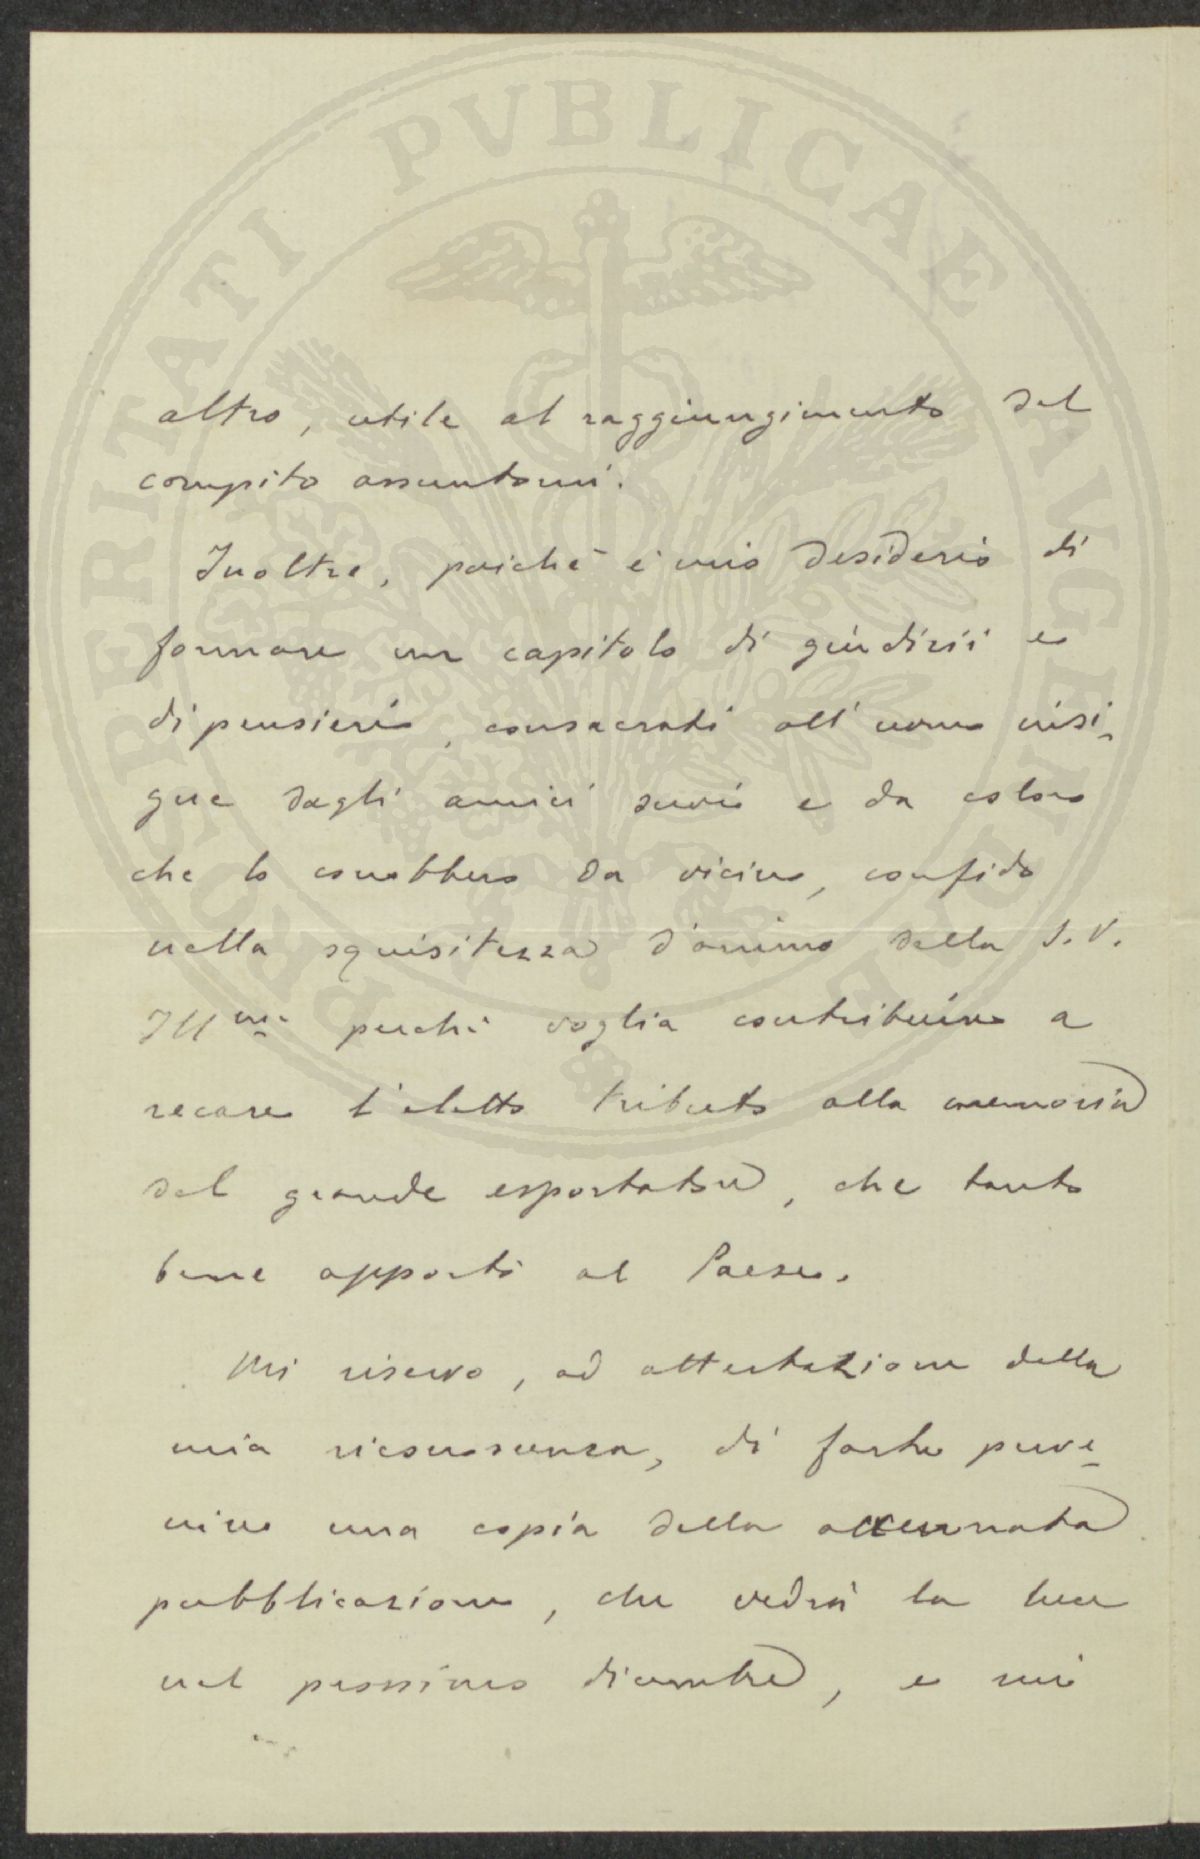 PROSPERITATI PVBLICAE AVGENDAE
altro, utile al raggiungimento del
compito assuntomi.
Inoltre, poichè è mio desiderio di
formare un capitolo di giudizii e
di pensieri, consacrati all'uomo insi-
gne dagli amici suoi e da coloro
che lo conobbero da vicino, confido
nella squisitezza d'animo della S. V.
Ill.ma perchè voglia contribuire a
recare l'eletto tributo alla memoria
del grande esportatore, che tanto
bene apportò al Paese.
Mi riservo, ad attestazione della
mia riconoscenza, di farLe perve-
nire una copia della accennata
pubblicazione, che vedrà la luce
nel prossimo dicembre, e mi